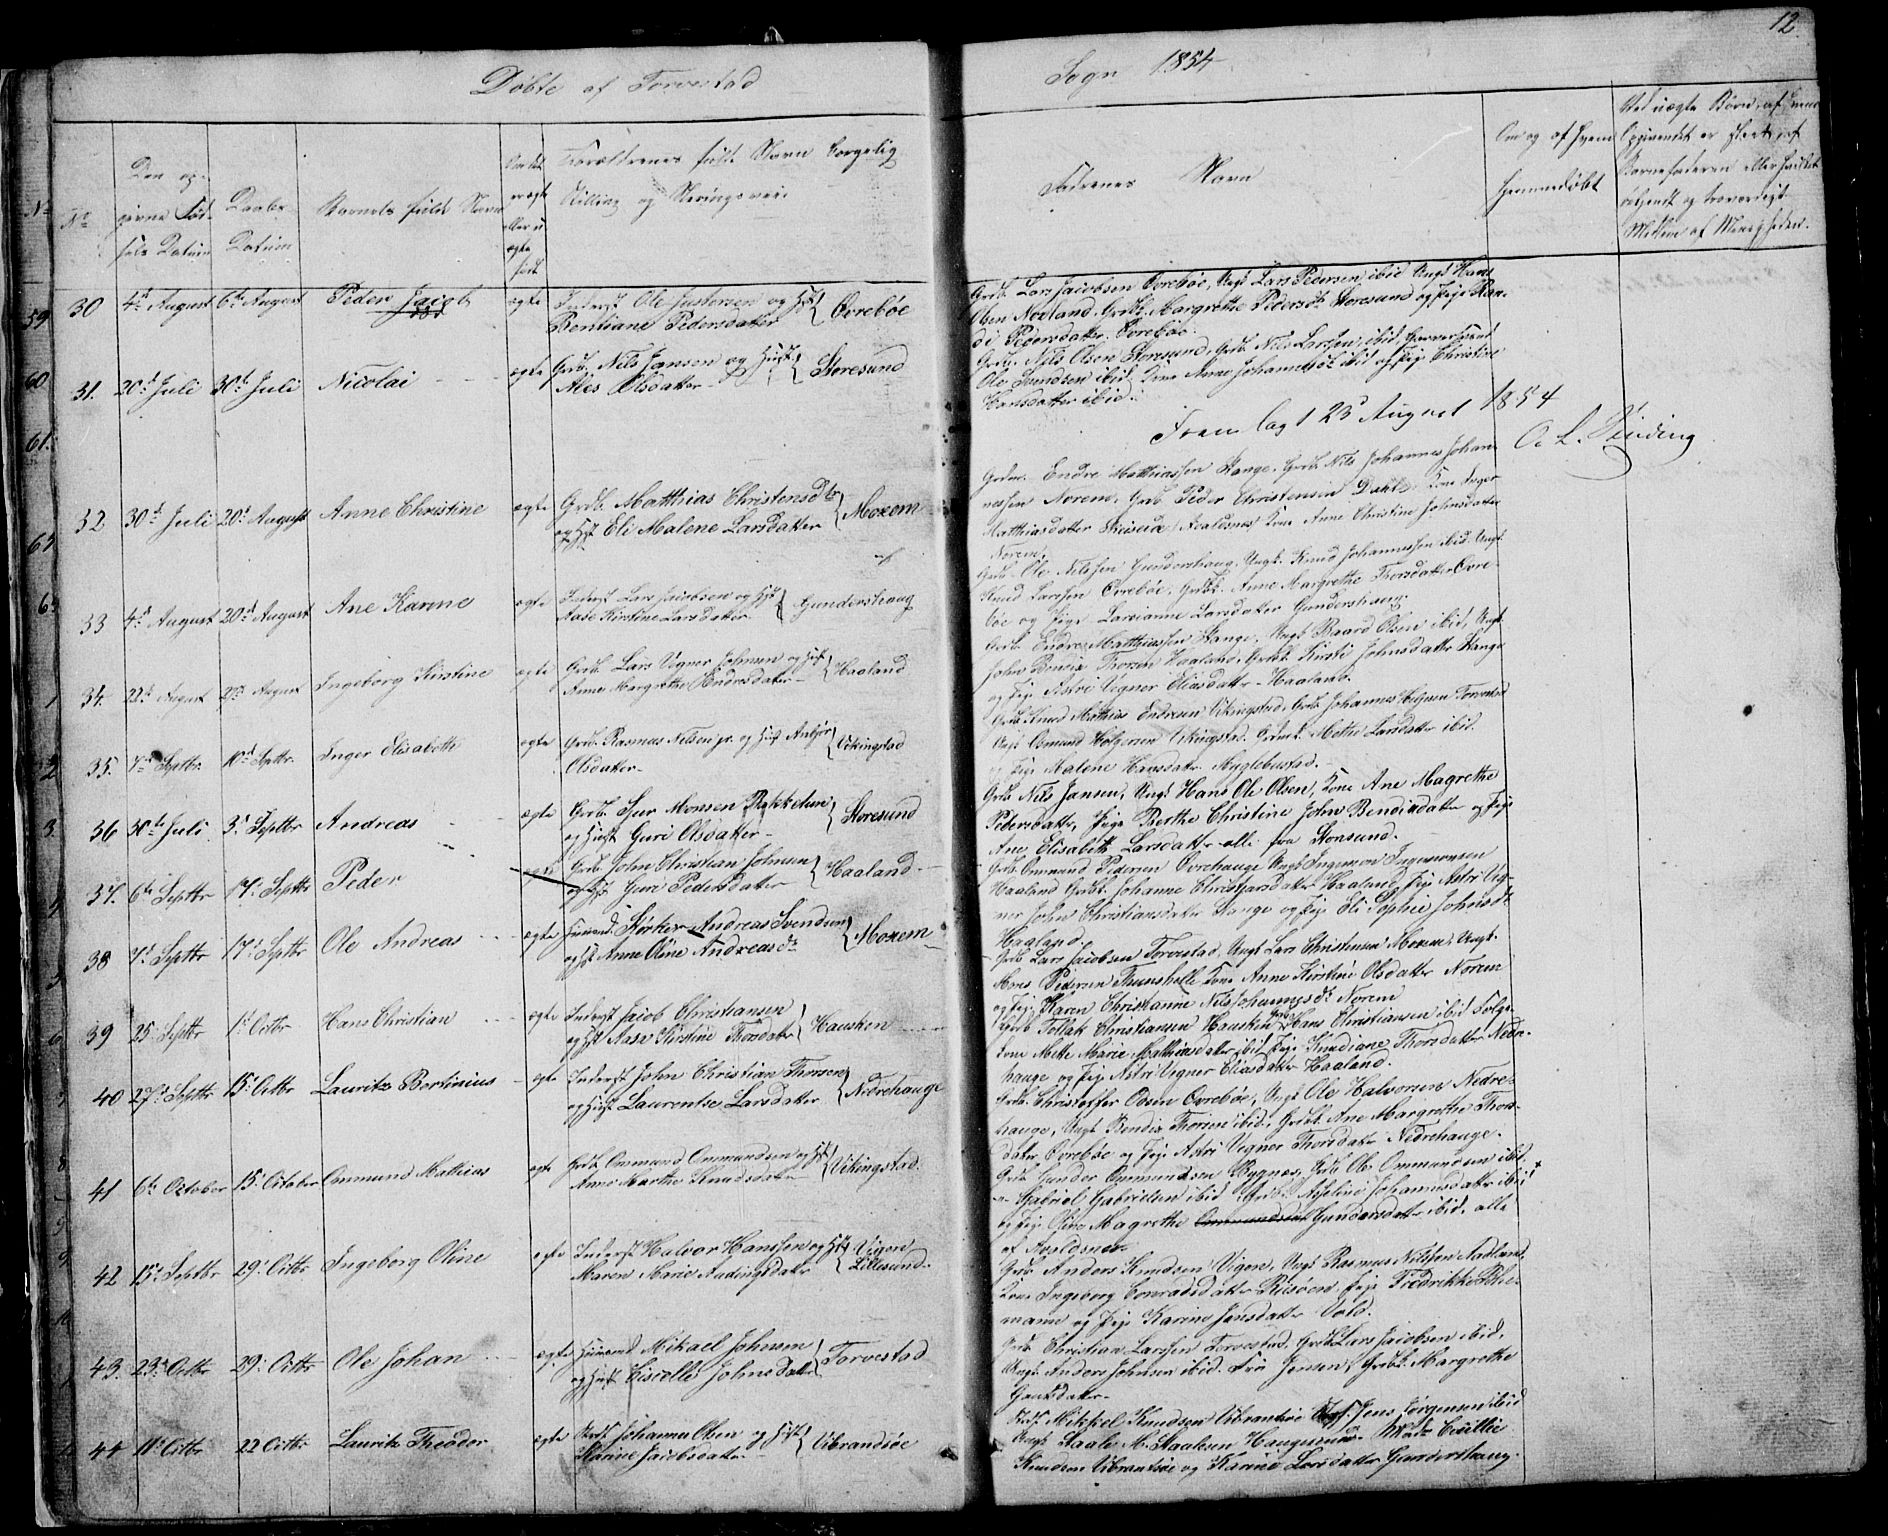 12.
Døbte af Torvestad
Sogn 1854
No
Den op-
givne Fød-
sels Datum
Daabs
Datum
Barnets fulde Navn
Om det
er ægte
eller u-
ægte
født
Forældrenes fulde Navn borgerlig
Stilling og Næringsvei
Faddrenes Navn
Om og af hvem
hjemmedøbt
Ved uægte Børn, af hvem
Opgivendet er skeet, af
Barnefaderen eller
og troværdigt
Medlem af Menigheden.
30 4de August 6te August Peder Jacob ægte Inderst Ole Justersen og Hst
Bentiane Pedersdatter } Øvrebøe
Grdb. Lars Jacobsen Øvrebøe, Ungk. Lars Pedersen ibid Ungk. Hans
Olsen Norland, Grdbk. Margrethe Pedersdtr Storesund og Pige Ran-
di Pedersdatter Øvrebøe.
31. 20d Juli 30te Juli Nicolai ægte Grdb. Nils Jansen og Hust.
Ales Olsdatter } Storesund
Grdb. Nils Olsen Storesund, Grdb. Nils Larsen, ibid
Ole Svendsen ibid, Kone Anne Johannesdtr ibid og Pige Christine
Hansdatter ibid.
Fremlagt 23d August 1854
32 30te Juli 20d August Anne Christine ægte Grdb. Matthias Christensdtr
og Hst Eli Malene Larsdatter } Moxem
Grdm. Endre Matthiassen Stange, Grdb. Nils Johannes Johan-
nessen Norem, Grdb Peder Christensen Dahle, Kone Inger
Matthiasdatter Avaldsnes Kone Anne Christine Johnsdatter
Norem.
33 4de August 20d August Ane Karine ægte Inderst Lars Jacobsen og Hst
Aase Kirstine Larsdatter } Gundershaug
Grdb. Ole Nilsen Gundershaug, Ungk. Knud Johannessen ibid. Ungk.
Knud Larsen Øvrebøe, Grdbk. Anne Margrethe Thorsdatter Øvre-
bøe og Pige Larsianne Larsdatter Gundershaug.
34. 22de August 27d August Ingeborg Kirstine ægte Grdb. Lars Vigner Johnsen og Hust
Anne Margrethe Endresdatter } Haaland
Grdb. Endre Matthiassen Stange, Ungk. Baard Olsen ibid, Ungk.
John Bendix Thorsen Haaland, Grdbk. Kirsti Johnsdatter Stange
og Pige Astri Vigner Eliasdatter Haaland.
35. 7de Septbr. 10d Septbr. Inger Elisabeth ægte Grdb. Rasmus Nilsen jr. og Hust Anbjør
Olsdatter } Vikingstad
Grdb Knud Mathias Endresen Vikingstad, Grdb. Johannes Helgesen Torvestad
Ungk. Osmund Holgersen Vikingstad. Grdmk. Methe Larsdatter ibid.
og Pige Malene Hansdatter Myglebustad.
36 30te Juli 3d Septbr Andreas ægte Grdb. Sjur Monsen Rakketun
og Hust Guri Olsdatter } Storesund
Grdb Nils Jansen, Ungk. Hans Ole Olsen, Kone Ane Magrethe
Pedersdatter, Pige Berthe Christine John Bendixdatter og Pige
Ane Elisabeth Larsdatter alle fra Storsund.
37. 6te Septbr 17d Septbr Peder ægte Grdb. John Christian Johnsen
og Hst Guri Pedersdatter } Haaland
Grdb Ommund Pedersen Øvrehauge Ungk Ingemon Ingemonsen
Haaland Grdbk. Johanne Christjansdatter Haaland, Pige Astri Vig-
ner John Christiansdatter Stange og Pige Eli Sophie Johnsdtr
Haaland.
38 7d Septbr 17d Septbr Ole Andreas ægte Huusmd. Kørker Andreas Svendsen
og Hst Anne Oline Andreasdtr } Moxem
Grdb. Lars Jacobsen Torvestad, Ungk Lars Christensen Moxem, Ungk.
Mons Pedersen Kone Anne Kirstine Olsdatter Norem
og Pige Karen Christianne Nils Johannesdtr Norem
39 25 Septbr 1d Octbr Hans Christian ægte Inderst Jacob Christiansen
og Hst Aase Kirstine Thorsdatter } Hausken
Grdb. Tollak Christiansen Hausken Grdb Hans Christiansen ibid Følge
Kone Mette Marie Mathiasdatter ibid Pige Knudiane Thorsdatter Nedre-
hauge og Pige Astri Vigner Eliasdatter Haaland.
40 27d Septbr 15d Octbr Lauritz Bertinius ægte Inderst John Christian Thorsen
og Hust Laurentse Larsdatter } Nedrehauge
Grdb. Christoffer Odsen Øvrebøe, Ungk Ole Halvorsen Nedre-
hauge, Ungk Bendix Thorsen ibid, Grdbk. Ane Margrethe Thors-
datter Øvrebøe og Pige Astri Vigner Thorsdatter Nedrehauge.
41 6te October 15d October Ommund Mathias ægte Grdb Ommund Ommundsen og Hst
Anne Marthe Knudsdatter } Vikingstad
Grdb Gunder Ommundsen Bygnes, Grdb Ole Ommundsen ibid,
Gabriel Gabrielsen ibid, Grdbk. Asseline Johannesdatter ibid
og Pige Oline Magrethe Ommundsdat Gundersdatter ibid. alle
af Avaldsnes.
42 15d Septbr 29d Octbr Ingeborg Oline ægte Inderst Halvor Hanssen og Hst
Maren Marie Audingsdatter } Vigere
Lillesund
Grdb. Anders Knudsen Vigere, Ungk Rasmus Nilssen Aadland,
Kone Ingeborg Conradsdatter Riisøen Pige Fredrikke Thie-
mann og Pige Karine Jansdatter Vold.
43. 23d Octbr 29d Octbr Ole Johan ægte Huusmd Mikael Johnsen
og Hust Ciscelle Johnsdatter } Torvestad
Grdb Christian Larsen Torvestad, Grdb Lars Jacobsen ibid,
Ungk. Anders Johnsen ibid. Fru Jensen, Grdbk. Margrethe
Gautsdatter.
44 11d Octbr 22 Octbr Lauritz Theodor ægte Johannes Olsen og Hst
Karine Jacobsdatter } Vibrandsøe
Mikkel Knudsen Vibrandsøe Jens Jørgensen ibid
Ungk Staale M. Staalesen Haugesund. Mad. Cecillie
Knudsen Vibrandsøe og Karine Larsdatter Gundershaug.